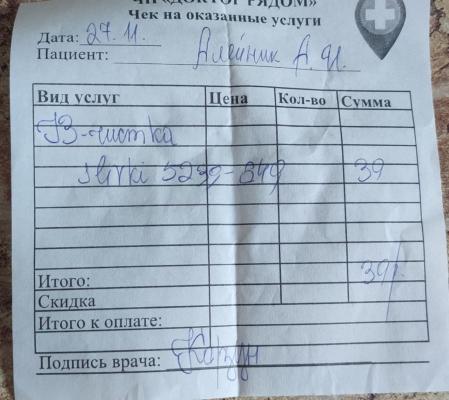 ЧП «ДОКТОР РЯДОМ»
Чек на оказанные услуги
Дата: 27.11.
Пациент: Алейник А.
Вид услуг Цена Кол-во Сумма
УЗ-чистка
slivki 5239-849 39
Итого: 39р.
Скидка
Итого к оплате:
Подпись врача: